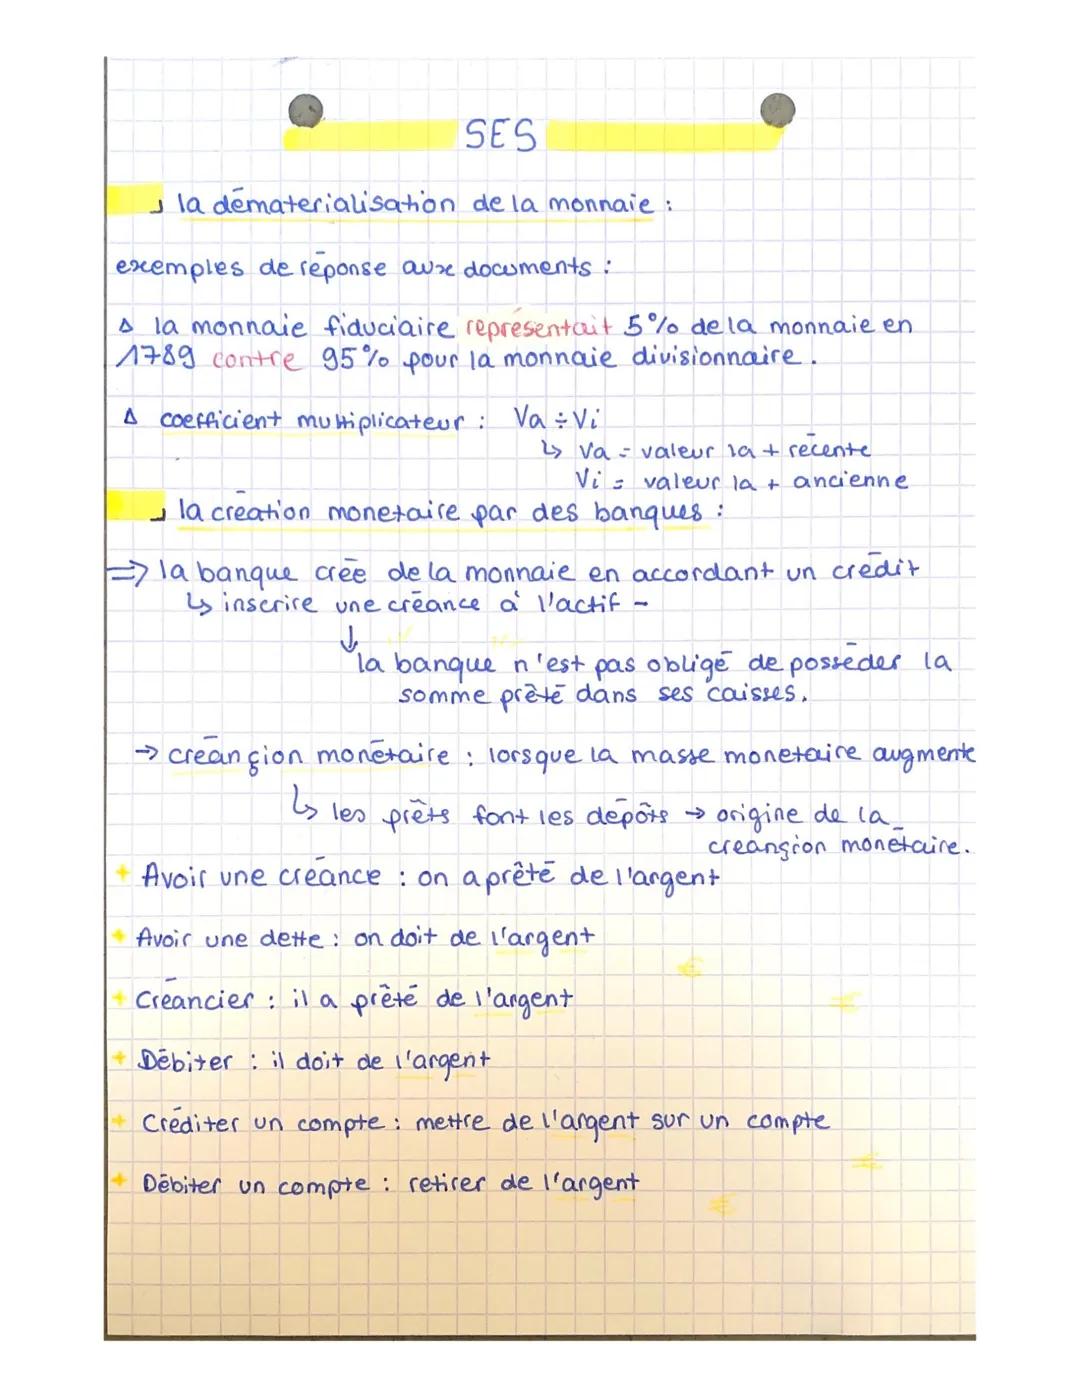 SES
la dématerialisation de la monnaie :
exemples de réponse aux documents :
∆ la monnaie fiduciaire représentait 5% de la monnaie en
1789 contre 95% pour la monnaie divisionnaire.
∆ coefficient multiplicateur : Va ÷ Vi
↳ Va = valeur la + récente
Vi = valeur la + ancienne
la création monetaire par des banques :
=> la banque crée de la monnaie en accordant un crédit
↳ inscrire une créance à l'actif -
↓
la banque n'est pas obligé de posséder la
somme prêté dans ses caisses.
→ créançion monétaire : lorsque la masse monetaire augmente
↳ les prêts font les dépôts → origine de la
creançion monétaire.
+ Avoir une créance : on a prêté de l'argent
+ Avoir une dette : on doit de l'argent
€
+ Créancier : il a prêté de l'argent
€
+ Débiter : il doit de l'argent
+ Créditer un compte : mettre de l'argent sur un compte
€
+ Débiter un compte : retirer de l'argent
€